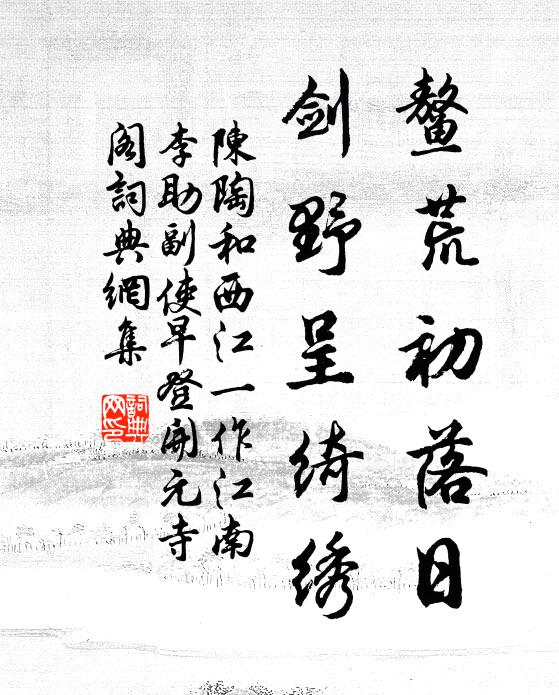 鳌荒初落日
剑野呈绮绣
陳陶和西江一作江南
李助副使早登開元寺
阁詞典網集
詞典網印